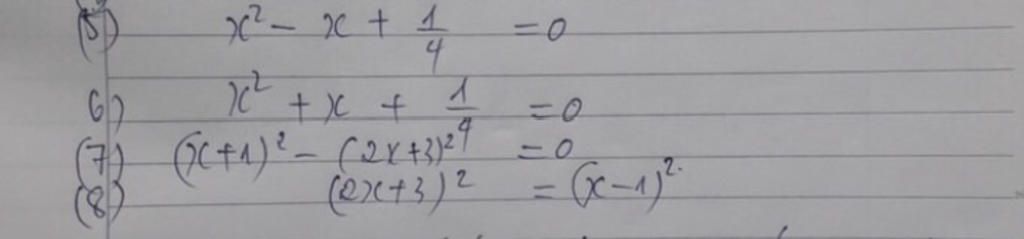 (5) x² - x + 1/4 = 0
6) x² + x + 1/4 = 0
(7) (x+1)² - (2x+3)² = 0
(8) (2x+3)² = (x-1)².